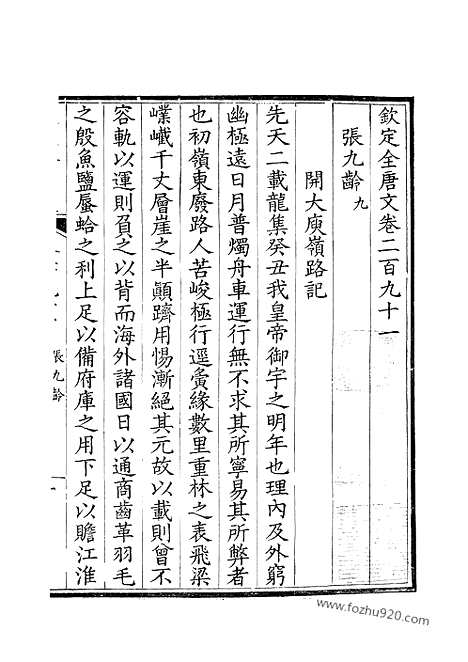 欽定全唐文卷二百九十一
張九齡 九
開大庾嶺路記
先天二載龍集癸丑我皇帝御宇之明年也理內及外窮
幽極遠日月普燭舟車運行無不求其所寧易其所弊者
也初嶺東廢路人苦峻極行逕夤緣數里重林之表飛梁
嶫巀千丈層崖之半顛躋用惕漸絕其元故以載則曾不
容軌以運則負之以背而海外諸國日以通商齒革羽毛
之殷魚鹽蜃蛤之利上足以備府庫之用下足以贍江淮
張九齡
一
www.fozhu920.com